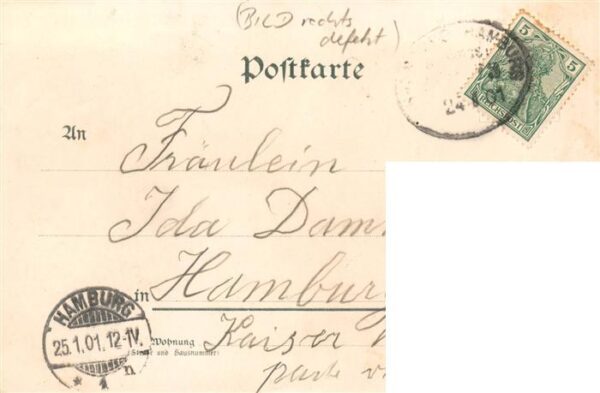 (BILD rechts
defekt)
HAMBURG
24
01
5 5
REICHSPOST
Postkarte
An
Fräulein
Ida Dam
in Hamburg
Wohnung
(Straße und Hausnummer)
Kaiser
HAMBURG
25.1.01.12-1V.
* 1 n